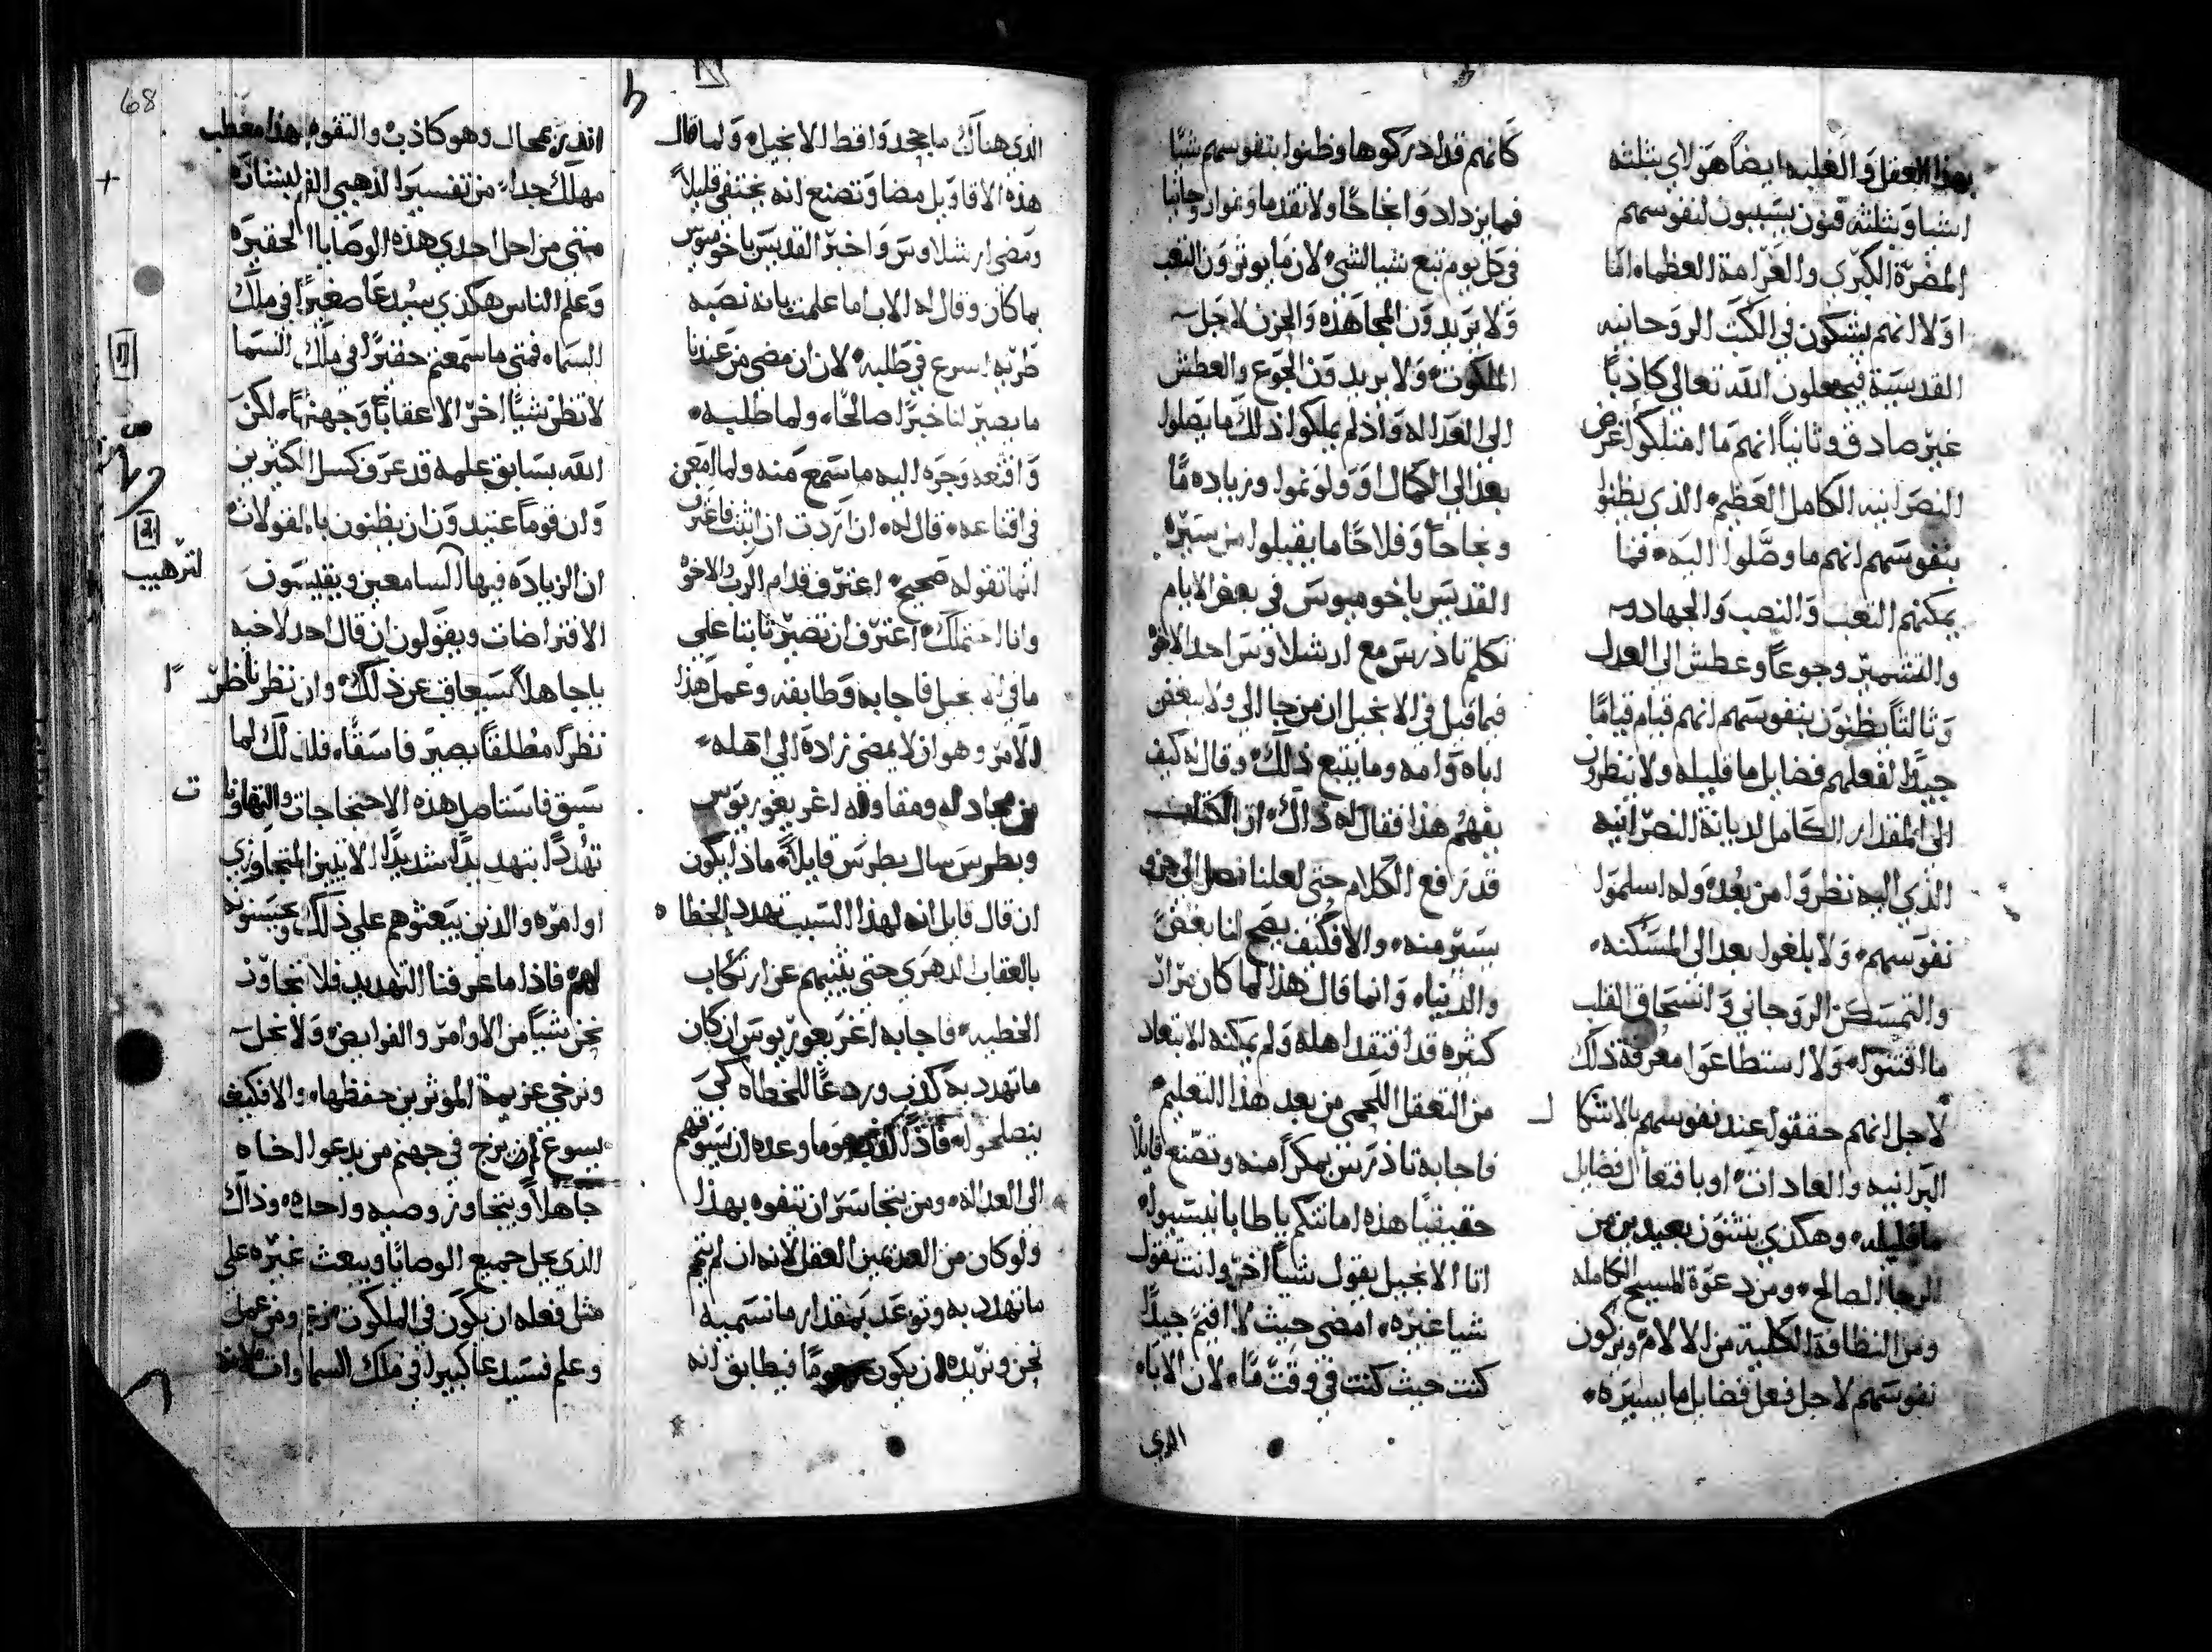 بهذا العقل والغلبه ايضاً هولاي بثلثه
اشيا وبثلثه فنون يسببون لنفوسهم
المضرّة الكبرى والغرامة العظما، امّا
اولا انهم يشكون في الكتب الروحانيه
القدسية فيجعلون الله تعالي كاذباً
غير صادق وثانياً انهم ما امتلكوا غرض
النصرانيه الكامل العظيم الذي يظنوا
بنفوسهم انهم ما وصّلوا اليه، فما
يمكنهم التعب والنصب والجهاد
والتشمير وجوعاً وعطش الي العدل
وثالثاً يظنون بنفوسهم انهم قيام قياماً
جيدًا لفعلهم فضايل ما قليله ولا ينظرون
الى المقدار الكامل لديانة النصرانيه
الذي اليه نظروا من بعد وله اسلموا
نفوسهم، ولا بلغوا بعد الى المسكنه،
والتمسكن الروحاني وانسحاق القلب
ما اقتنوا، ولا استطاعوا معرفة ذلك
لاجل انهم حققوا عند نفوسهم بالاشكا
ل
البرانيه والعادات، او بافتعال فضايل
ما قليله، وهكذي ينثنون بعيدين من
الرجا الصالح، ومن دعوة المسيح الكامله
ومن النظافة الكلية من الالام ويزكون
نفوسهم لاجل فعل فضايل ما يسيره،
كانهم قد ادركوها وظنوا بنفوسهم شيًا
فما يزداد وانجاحًا ولا تقدما
في كل يوم تبع شيا لشي، لان ما يوثرون التعب
ولا يريدون المجاهده والحزن لاجل
الملكوت، ولا يريدون الجوع والعطش
الى العداله واذ لم يملكوا ذلك ما يصلوا
بعد الي الكمال او ولو نموا وزياده مّا
ونجاحاً وفلاحًا ما يقبلوا من سيرة
القديس باخوميوس في بعض الايام
تكلم تاذرس مع ارشلاوس احد الاخوه
فيما قيل في الانجيل ان من جا الي ولا يبغض
اباه وامه وما يتبع ذلك، وقال له كيف
يفهم هذا فقال له ذاك، ان الكتاب
قد ترفع الكلام حتى لعلنا نصل الى جزو
يسير منه، والا فكيف يصح لنا بغض
والدينا، وانما قال هذا لما كان مراد
كثيره قد افتقدا هله ولم يمكنه الابتعاد
من التعقل اللحمي من بعد هذا التعليم،
فاجابه تاذرس بمكراً منه وتصنع قايلاً
حقيقيًا هذه امانتكم ياطابانيسيوا،
انا الانجيل يقول شياً اخر وانت تقول
شيا غيره، امضي حيث لا اقيم جيدًا
كنت حيث كنت في وقت مّا، لان الاباء
الذي
الذي هناك ما يجحدوا قط الانجيل، ولما قال
هذه الاقاويل مضا وتصنع انه يختفي قليلاً
ومضي ارشلاوس واخبر القديس باخوميوس
بما كان وقال له الاب اما علمت بانه نصبه
طريه اسرع في طلبه، لان ان مضي من عندنا
ما يصير لنا خبرًا صالحًا، ولما طلبه،
واقنعه وجره اليه ما سمع منه ولما امعن
في اقناعه، قال له، ان اردت ان اثبت فاعترف
انما تقوله صحيح، اعترف قدام الرب والاخوه
وانا احتملك، اعترف ان تصير ثابتا علي
ما في الانجيل فاجابه وطابقه وعمل هذا
الامر وهو ان لا يمضي زادة الى اهله،
من مجادله ومقاوله اغريغوريوس
وبطرس سال بطرس قايلاً، ماذا يكون
ان قال قايل انه لهذا السبب تهدد الخطا ه
بالعقاب الدهري حتي يثنيهم عن ارتكاب
الخطيه، فاجابه اغريغوريوس ان كان
ما تهدد به كذب وردعًا للخطاه كي
ينصلحوا، فاذاً وما وعده ان يسوقهم
الى العداله، ومن يتجاسر ان يتفوه بهذا
ولو كان من العديمين العقل لانه ان لم يتم
ما تهدد به وتوعد بمقدار ما نسميه
نحن ونريده ان يكون فيطابق انه
68
انذر بمحال وهو كاذب، والتفوه بهذا معطب
مهلك جداً، من تفسير الذهبي الفم لبشارة
متى من اجل احدي هذه الوصايا الحقيره
وعلم الناس هكذي سيُدعا صغيرًا في ملك
السما، فمتي ما سمعتم حقيرًا في ملك السما
لا تظن شيًا اخر الا عقاباً وجهنمًا، لكن
الله بسابق علمه قد عرف كسل الكثيرين
وان قوماً عتيدون ان يظنون باالقولات
ان الزياده فيها السامعين ويقيسون
لترهيب
الافتراضات ويقولون ان قال احد لاخيه
ياجاهلاً سيعاقب عن ذلك، وان نظر ناظر
نظرًا مطلقاً يصير فاسقًا، فلذلك لما
سبق فاستاصل هذه الاحتجاجات والتهاونا
ت
تهددًا بتهديدًا شديدًا الاثنين المتجاوزي
اوامره والذين يبعثوهم علي ذلك
لهم، فاذا ما عرفنا التهديد فلا نتجاوز
نحن شياً من الاوامر والفرايض، ولا نحل
ونرخي عزيمة الموثرين حفظها، والا فكيف
يسوغ ان يزج في جهنم من يدعوا اخاه
جاهلاً ويتجاوز وصيه واحده، وذاك
الذي يحل جميع الوصايا ويبعث غيره علي
مثل فعله ان يكون في الملكوت ومن عمل
وعلم فسيدعا كبيرا في ملك السماوات